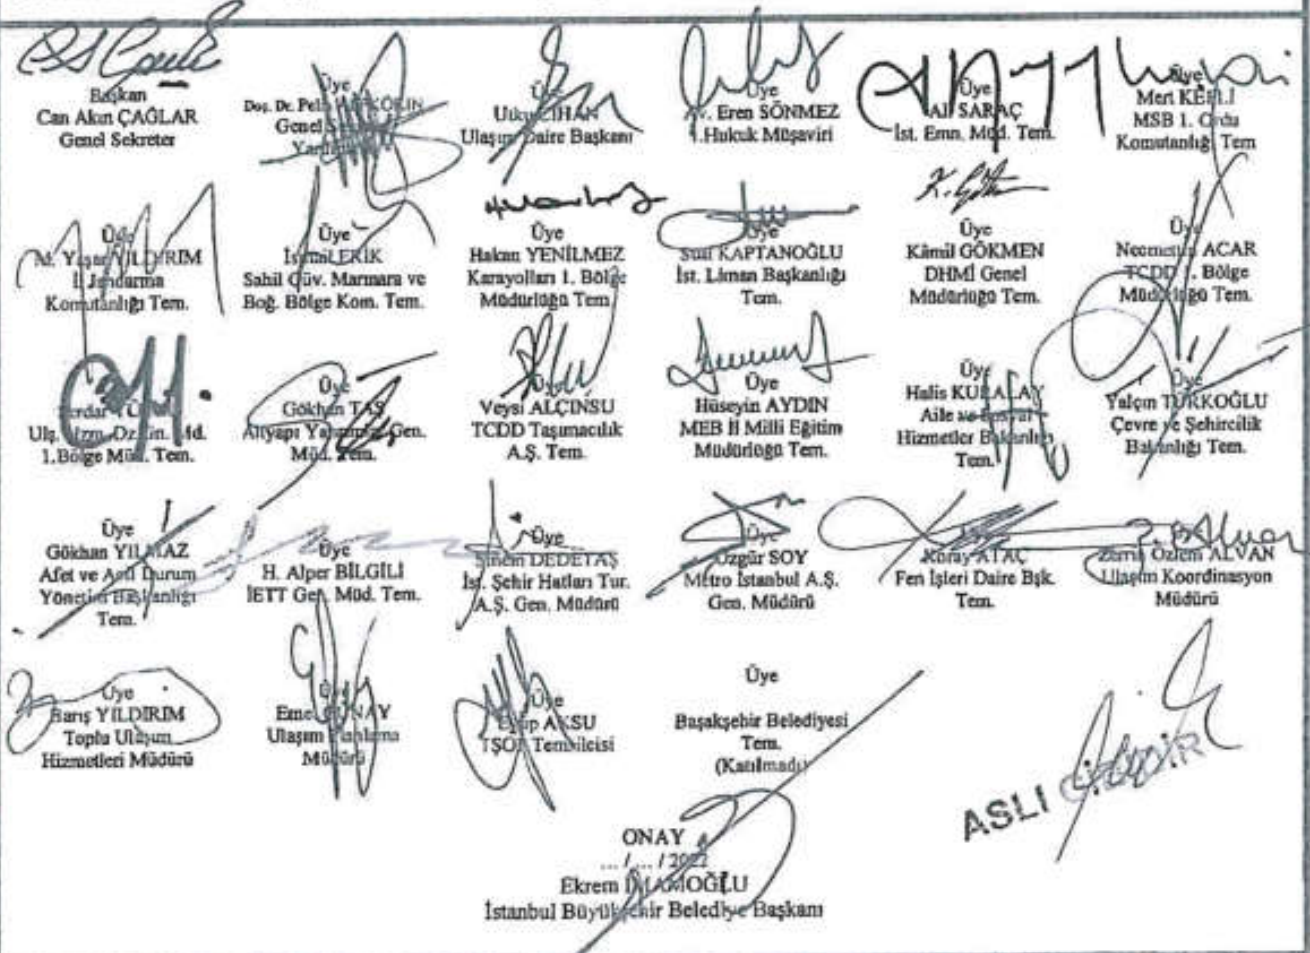 Başkan
Can Akın ÇAĞLAR
Genel Sekreter
Üye
Doç. Dr. Pelin
Genel
Üye
Utku CİHAN
Ulaşım Daire Başkanı
Üye
Av. Eren SÖNMEZ
1.Hukuk Müşaviri
Üye
Ali SARAÇ
İst. Emn. Müd. Tem.
Üye
Mert
MSB 1. Ordu
Komutanlığı Tem
Üye
M. Yaşar YILDIRIM
İl Jandarma
Komutanlığı Tem.
Üye
İsmail
Sahil Güv. Marmara ve
Boğ. Bölge Kom. Tem.
Üye
Hakan YENİLMEZ
Karayolları 1. Bölge
Müdürlüğü Tem
Üye
KAPTANOĞLU
İst. Liman Başkanlığı
Tem.
Üye
Kâmil GÖKMEN
DHMİ Genel
Müdürlüğü Tem.
Üye
Necmettin ACAR
TCDD 1. Bölge
Müdürlüğü Tem.
Serdar
1.Bölge Müd. Tem.
Üye
Gökhan TAŞ
Altyapı Gen.
Müd. Tem.
Üye
Veysi ALÇINSU
TCDD Taşımacılık
A.Ş. Tem.
Üye
Hüseyin AYDIN
MEB İl Milli Eğitim
Müdürlüğü Tem.
Üye
Halis KURALAY
Aile ve Sosyal
Hizmetler Bakanlığı
Tem.
Üye
Yalçın TÜRKOĞLU
Çevre ve Şehircilik
Bakanlığı Tem.
Üye
Gökhan YILMAZ
Afet ve Acil Durum
Yönetim Başkanlığı
Tem.
Üye
H. Alper BİLGİLİ
İETT Gen. Müd. Tem.
Üye
Sinem DEDETAŞ
İst. Şehir Hatları Tur.
A.Ş. Gen. Müdürü
Üye
Özgür SOY
Metro İstanbul A.Ş.
Gen. Müdürü
Koray ATAÇ
Fen İşleri Daire Bşk.
Tem.
Özlem ALVAN
Ulaşım Koordinasyon
Müdürü
Üye
Barış YILDIRIM
Toplu Ulaşım
Hizmetleri Müdürü
Üye
Emel
Ulaşım Planlama
Müdürü
Üye
Eyüp AKSU
TŞOF Temsilcisi
Üye
Başakşehir Belediyesi
Tem.
(Katılmadı)
ASLI GİBİDİR
ONAY
... / ... / 2022
Ekrem İMAMOĞLU
İstanbul Büyükşehir Belediye Başkanı